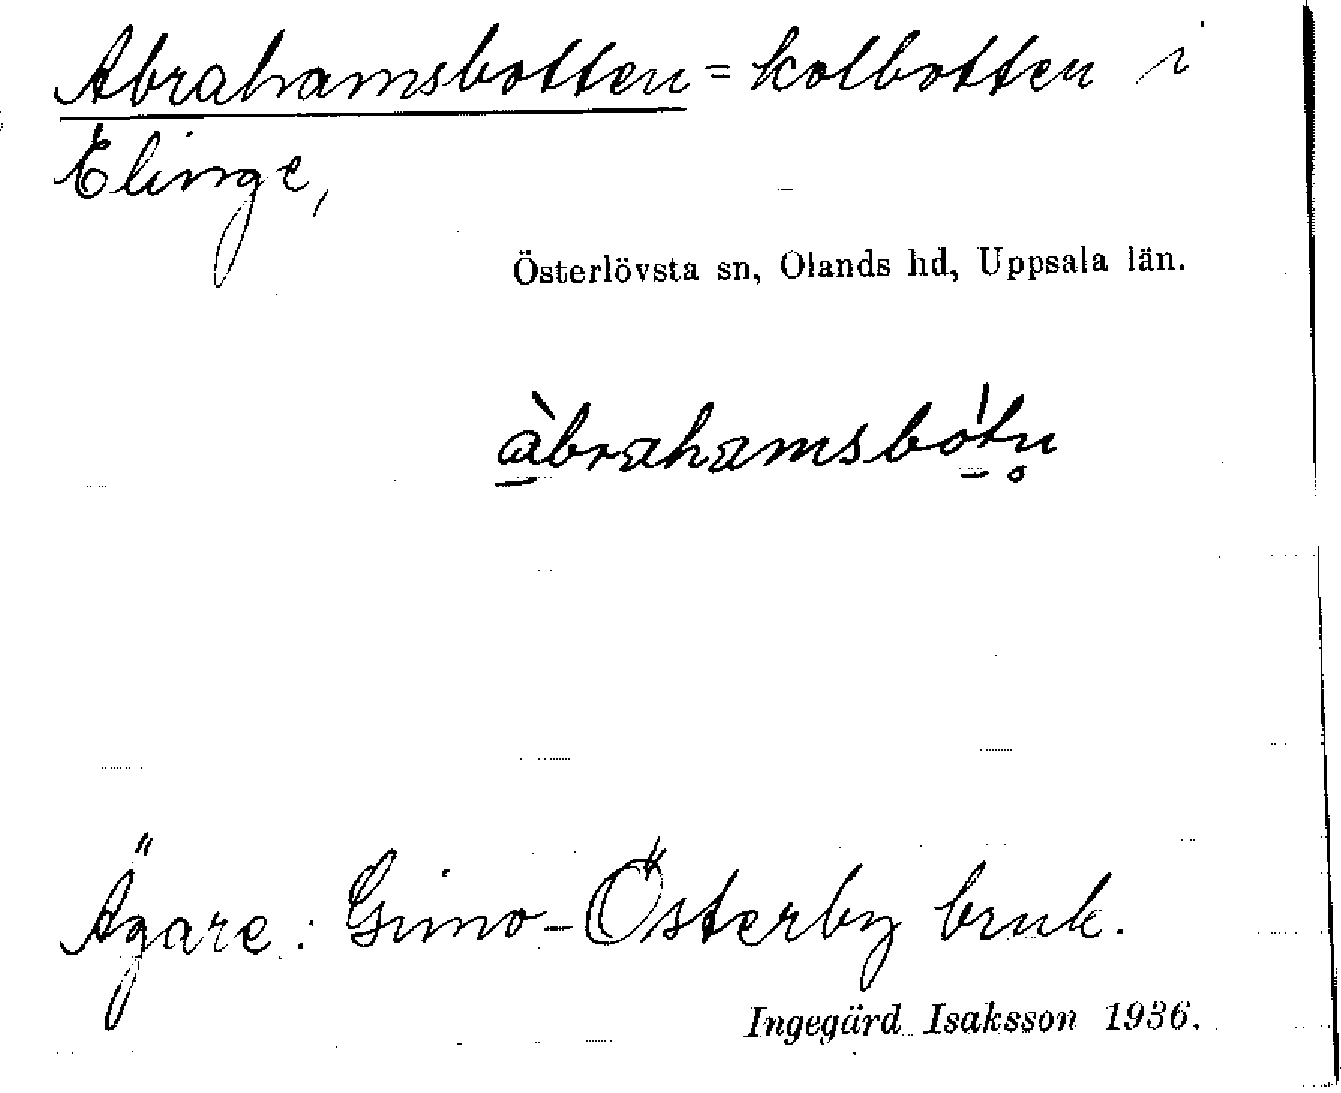 Abrahamsbotten = kolbotten i
Elinge,
Österlövsta sn, Olands hd, Uppsala län.
à̲brahamsbó̲tn̥
Ägare: Gimo-Österby bruk.
Ingegärd Isaksson 1936.